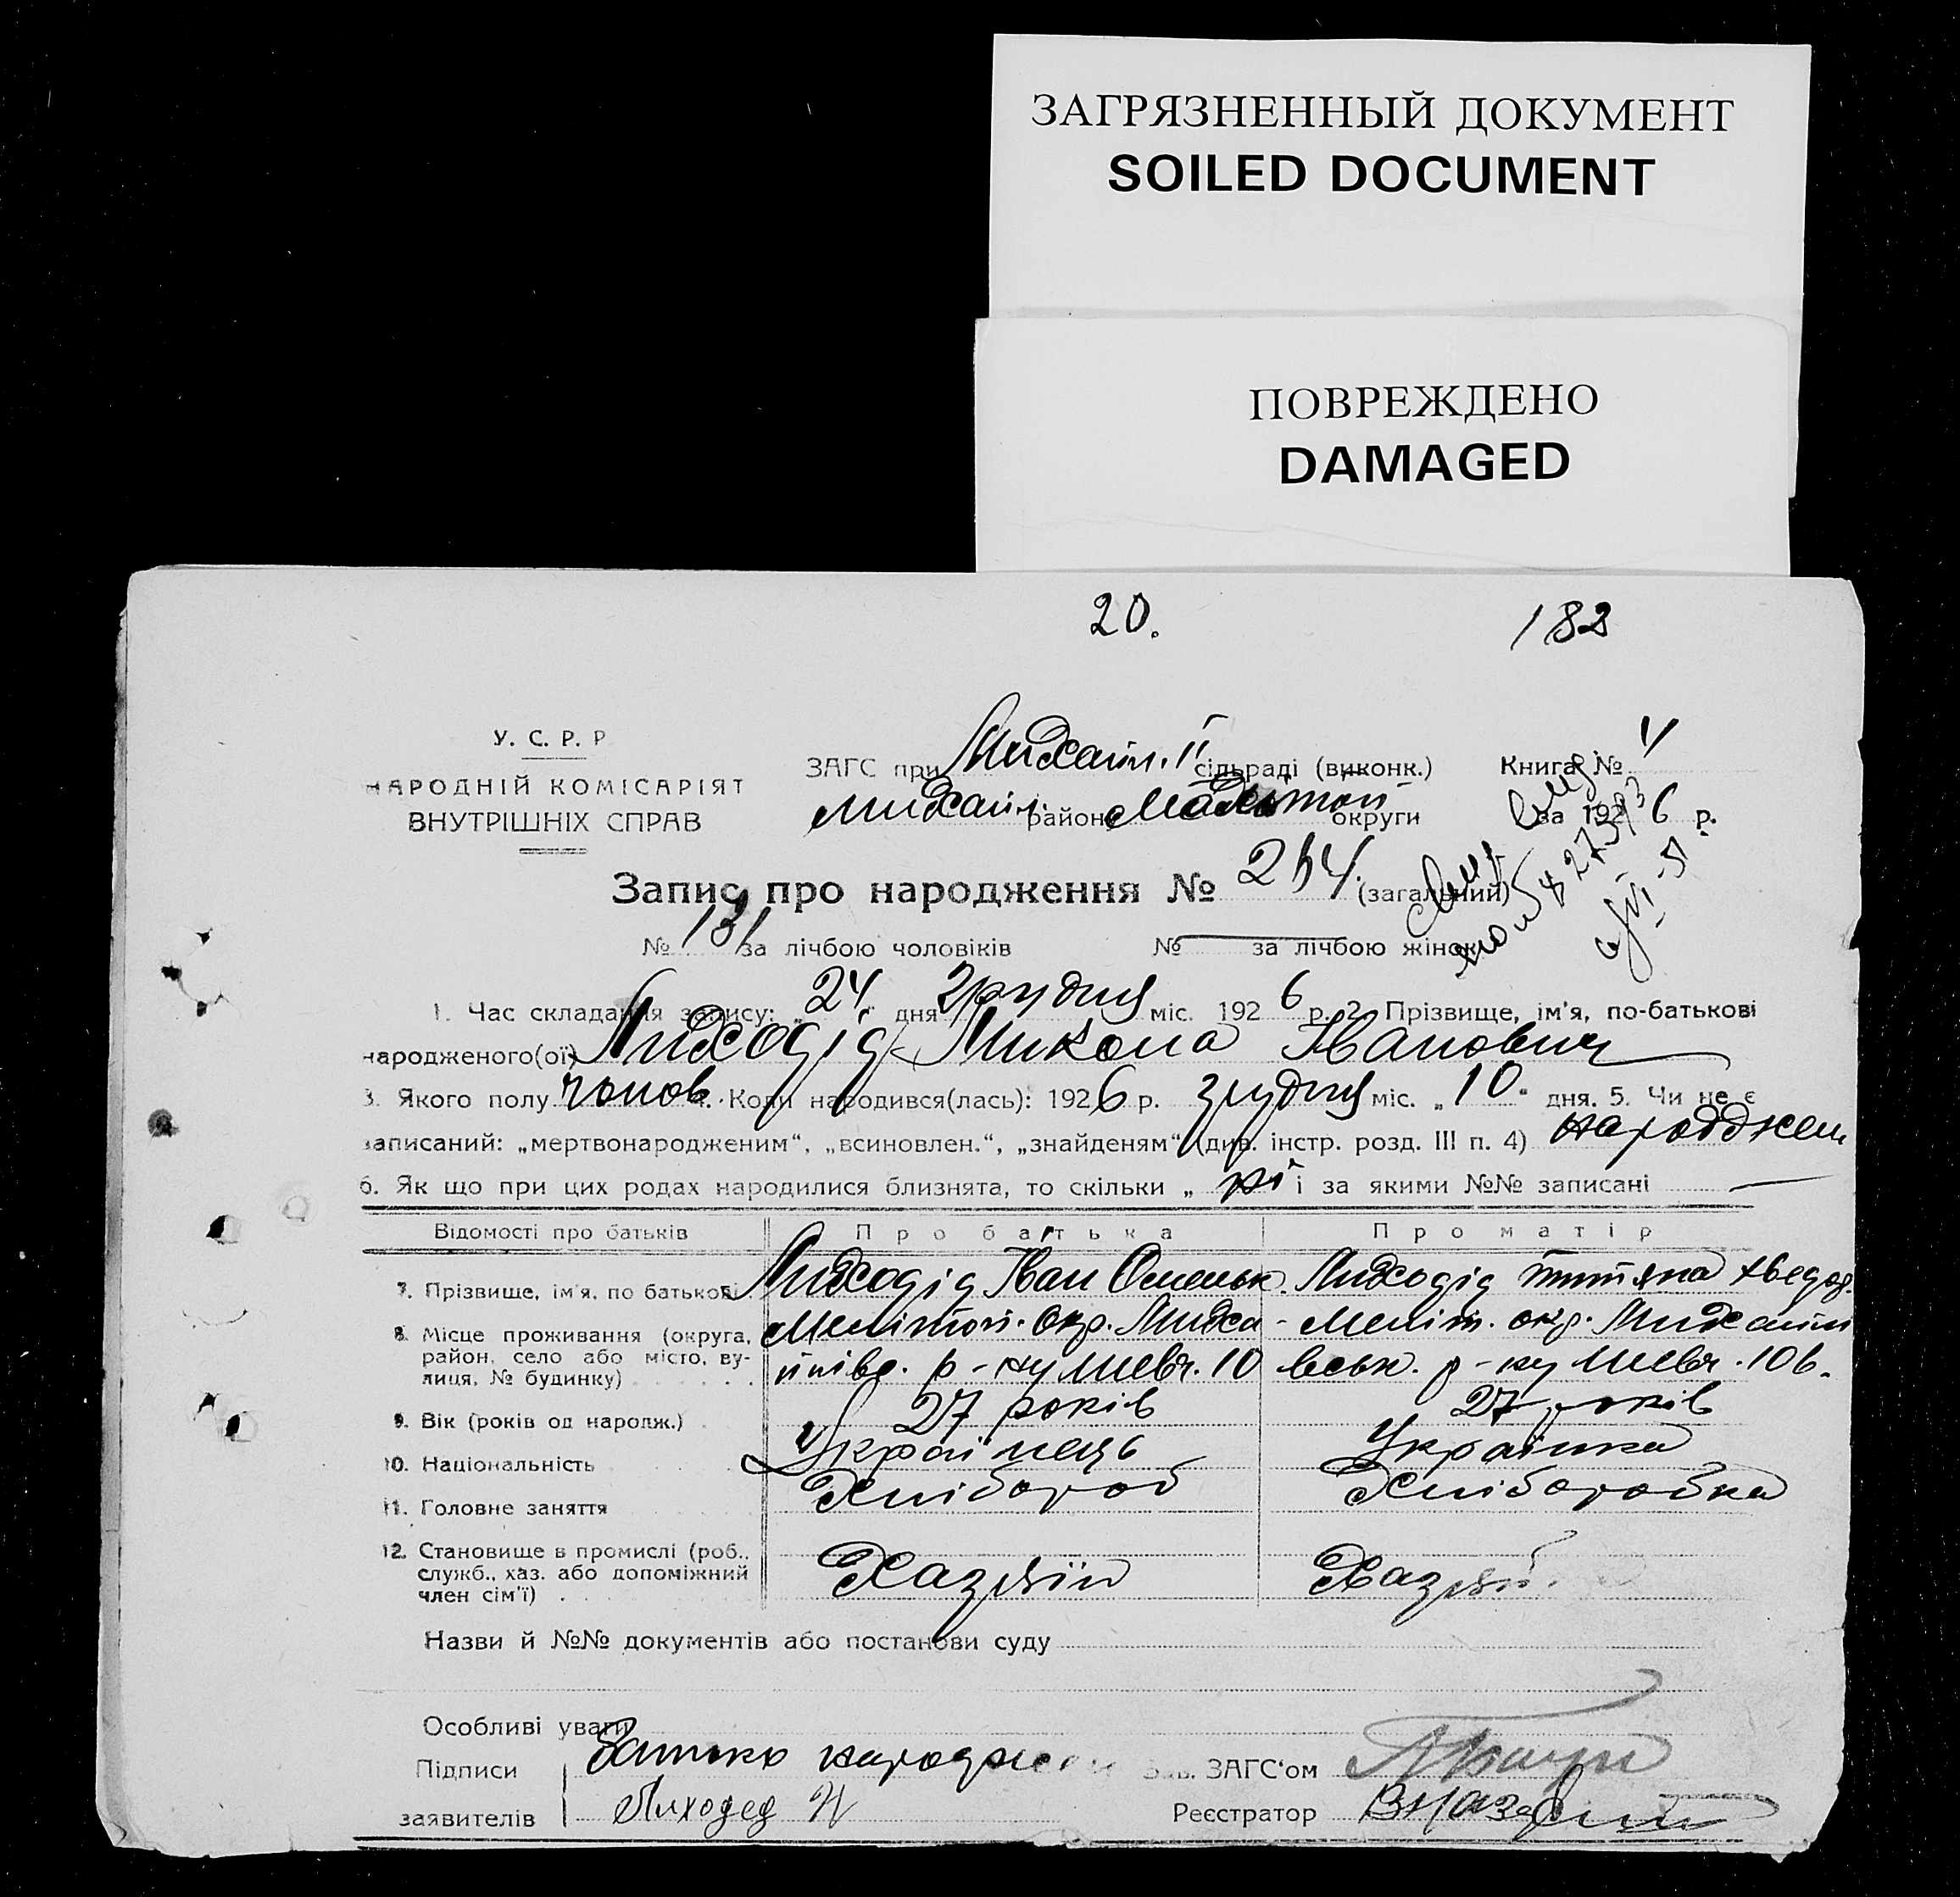 ЗАГРЯЗНЕННЫЙ ДОКУМЕНТ
SOILED DOCUMENT
ПОВРЕЖДЕНО
DAMAGED
20. 182
У. С. Р. Р
НАРОДНІЙ КОМІСАРІЯТ
ВНУТРІШНІХ СПРАВ
ЗАГС при Михайл. ІІ сільраді (виконк.) Книга № V
Михайл. район округи за 1926 р.
Запис про народження № 254. (загальний)
№ 131 за лічбою чоловіків № за лічбою жінок
1. Час складання запису: „24“ дня грудня міс. 1926 р. 2. Прізвище, ім'я, по-батькові
народженого(ої) Лиходід Микола Іванович
3. Якого полу чолов. 4. Коли народився(лась): 1926 р. грудня міс. „10“ дня. 5. Чи не є
записаний: „мертвонародженим“, „всиновлен.“, „знайденям“ (див. інстр. розд. III п. 4) народжен
6. Як що при цих родах народилися близнята, то скільки „ ні і за якими №№ записані —
Відомості про батьків Про батька Про матір
7. Прізвище, ім'я, по батькові Лиходід Іван Омельк. Лиходід Тит'яна Хведор.
8. Місце проживання (округа, район, село або місто, вулиця, № будинку) Мелітоп. окр. Михайлівс. р-ну Шевч. 10 Меліт. окр. Михайлівськ. р-ну Шевч. 106.
9. Вік (років од народж.) 27 років 27 років
10. Національність Українець Українка
11. Головне заняття Хлібороб Хліборобка
12. Становище в промислі (роб., служб., хаз. або допоміжний член сім'ї) Хазяїн Хазяй.
Назви й №№ документів або постанови суду
Особливі уваги
Підписи Батько народжен Зав. ЗАГС'ом
заявителів Лиходед И Реєстратор